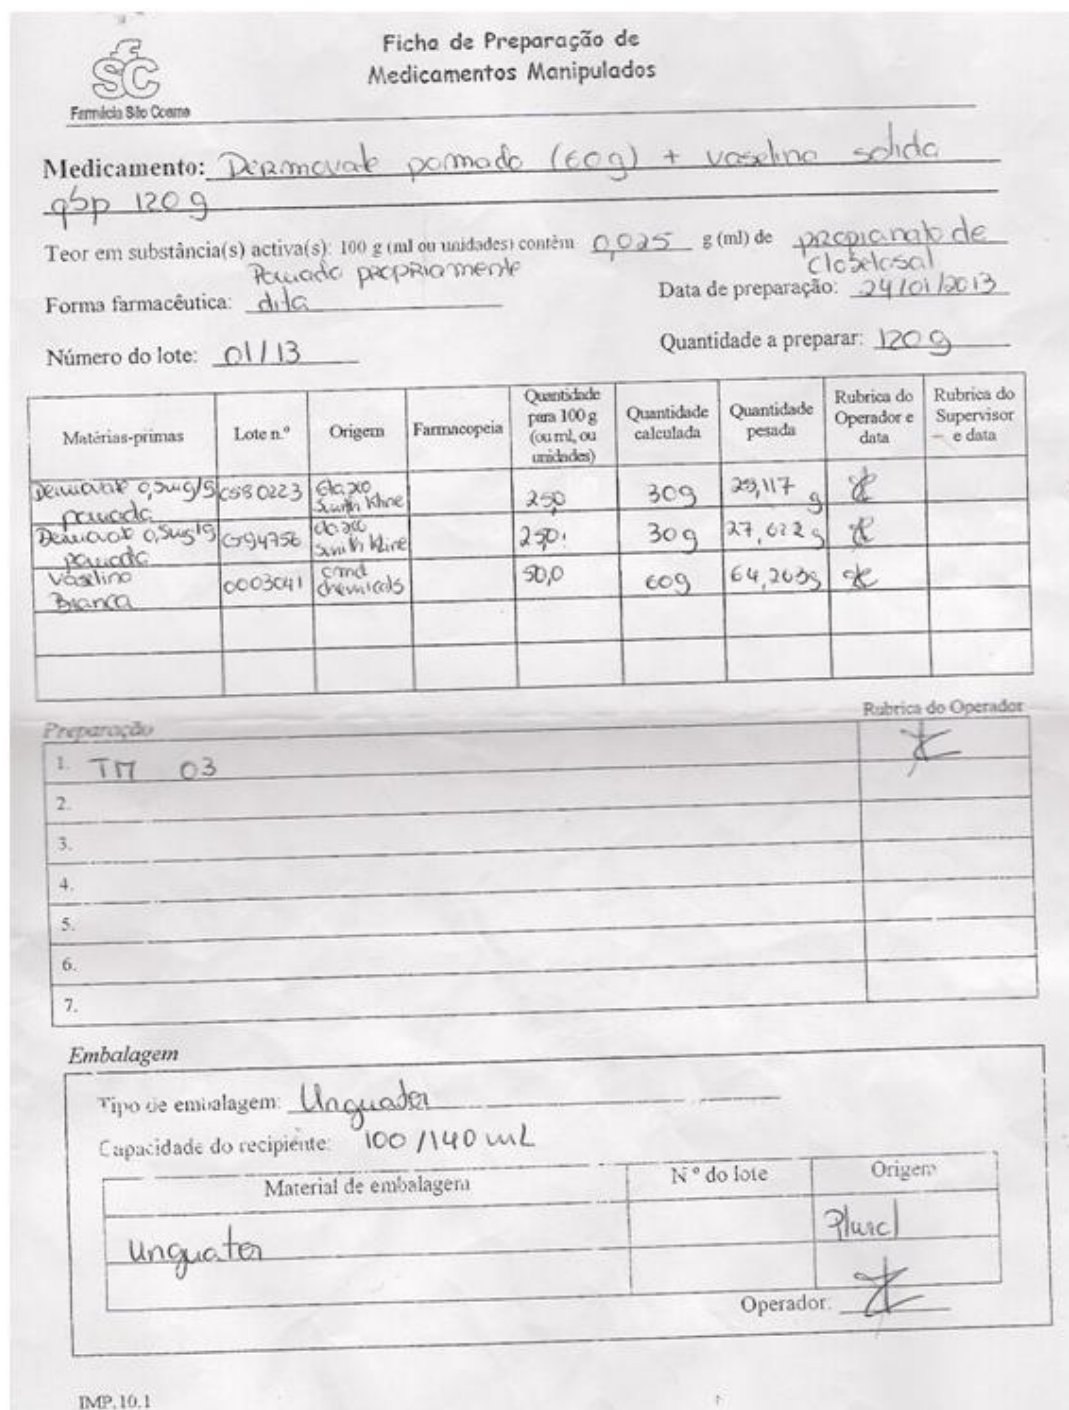 Ficha de Preparação de
Medicamentos Manipulados
fSC
Farmácia São Cosme
Medicamento: Dermovate pomada (60g) + vaselina solida
qbp 120 g
Teor em substância(s) activa(s): 100 g (ml ou unidades) contêm 0,025 g (ml) de propianato de
clobetasol
Pomada propriamente
Forma farmacêutica: dita
Data de preparação: 24/01/2013
Número do lote: 01/13
Quantidade a preparar: 120 g
Matérias-primas Lote n.º Origem Farmacopeia Quantidade para 100 g (ou ml, ou unidades) Quantidade calculada Quantidade pesada Rubrica do Operador e data Rubrica do Supervisor e data
Dermovate 0,5mg/g pomada C580223 Glaxo Smith Kline 25,0 30g g
Dermovate 0,5mg/g pomada G94756 Glaxo Smith Kline 25,0 30g 27,622g
Vaselina Branca 0003041 cmd chemicals 50,0 60g 64,263g
Preparação
Rubrica do Operador
1. TM 03
2.
3.
4.
5.
6.
7.
Embalagem
Tipo de embalagem: Unguator
Capacidade do recipiente: 100/140 mL
Material de embalagem Nº do lote Origem
unguator
Operador:
IMP.10.1